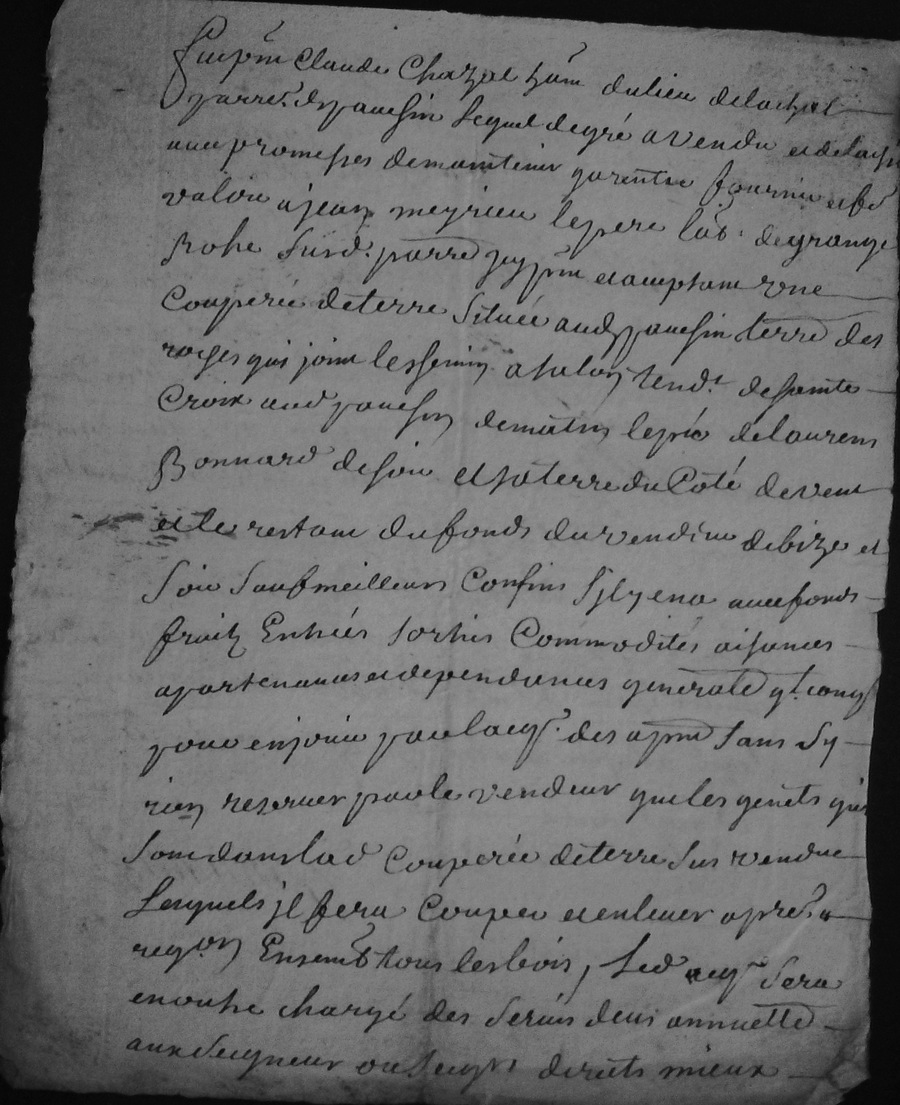 Fut pnt Claude Chazal hbnt du lieu de lachal
parre. de paulhin lequel de gré a vendu et delaissé
avec promesses de maintenir garentir fournir et fe
valoir a jean meyrieu le pere lab. de grange
Rohe sus d. parre icy pnt et aceptant une
Couperée de terre située aud paulhin terre des
qui joint le chemin tend.t de sainte
Croix aud paulhin de matin le pré de laurens
Bonnard de soir et sa terre du Coté de vent
et le restant du fonds du vendeur de bize et
Soir Sauf meilleurs Confins Sy ly en a avec fonds
fruitz Entrées Sorties Commodités aisances
apartenances et dependances generalle
pour en jouir par lacqr. des a pnt Sans Sy
rien reserver par le vendeur que les genets qui
Sont dans lad Couperée de terre Sus vendue
Lesquels jl fera Couper et enlever apres
Ensemb tous les bois, Led acqr Sera
en outre chargé des Servis deus annuelle
aux Seigneur ou Seigrs directs mieux